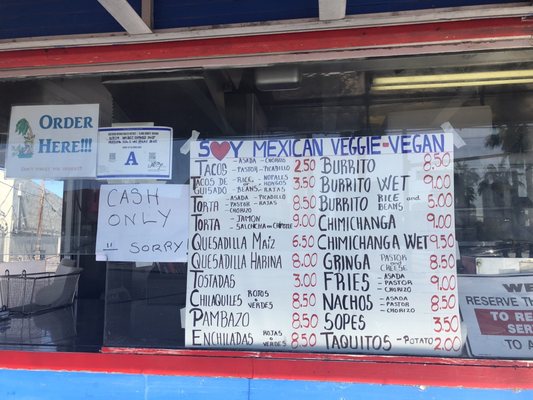 ORDER
HERE!!!
A
CASH
ONLY
SORRY
SOY MEXICAN VEGGIE-VEGAN
TACOS - ASADA - CHORIZO - PASTOR - PICADILLO 2.50
TACOS DE GUISADO - RAJAS - NOPALES - HONGOS 3.50
TORTA - ASADA - PICADILLO - PASTOR - RAJAS - CHORIZO 8.50
TORTA - JAMON - SALCHICHA CON CHIPOTLE 9.00
QUESADILLA MAÍZ 6.50
QUESADILLA HARINA 8.00
TOSTADAS 3.00
CHILAQUILES ROJOS VERDES 8.50
PAMBAZO 8.50
ENCHILADAS ROJAS VERDES 8.50
BURRITO 8.50
BURRITO WET 9.00
BURRITO RICE AND BEANS 5.00
CHIMICHANGA 9.00
CHIMICHANGA WET 9.50
GRINGA PASTOR AND CHEESE 8.50
FRIES - ASADA - PASTOR - CHORIZO 9.00
NACHOS - ASADA - PASTOR - CHORIZO 8.50
SOPES 3.50
TAQUITOS - POTATO 2.00
WE
RESERVE THE
TO RE
SERV
TO A